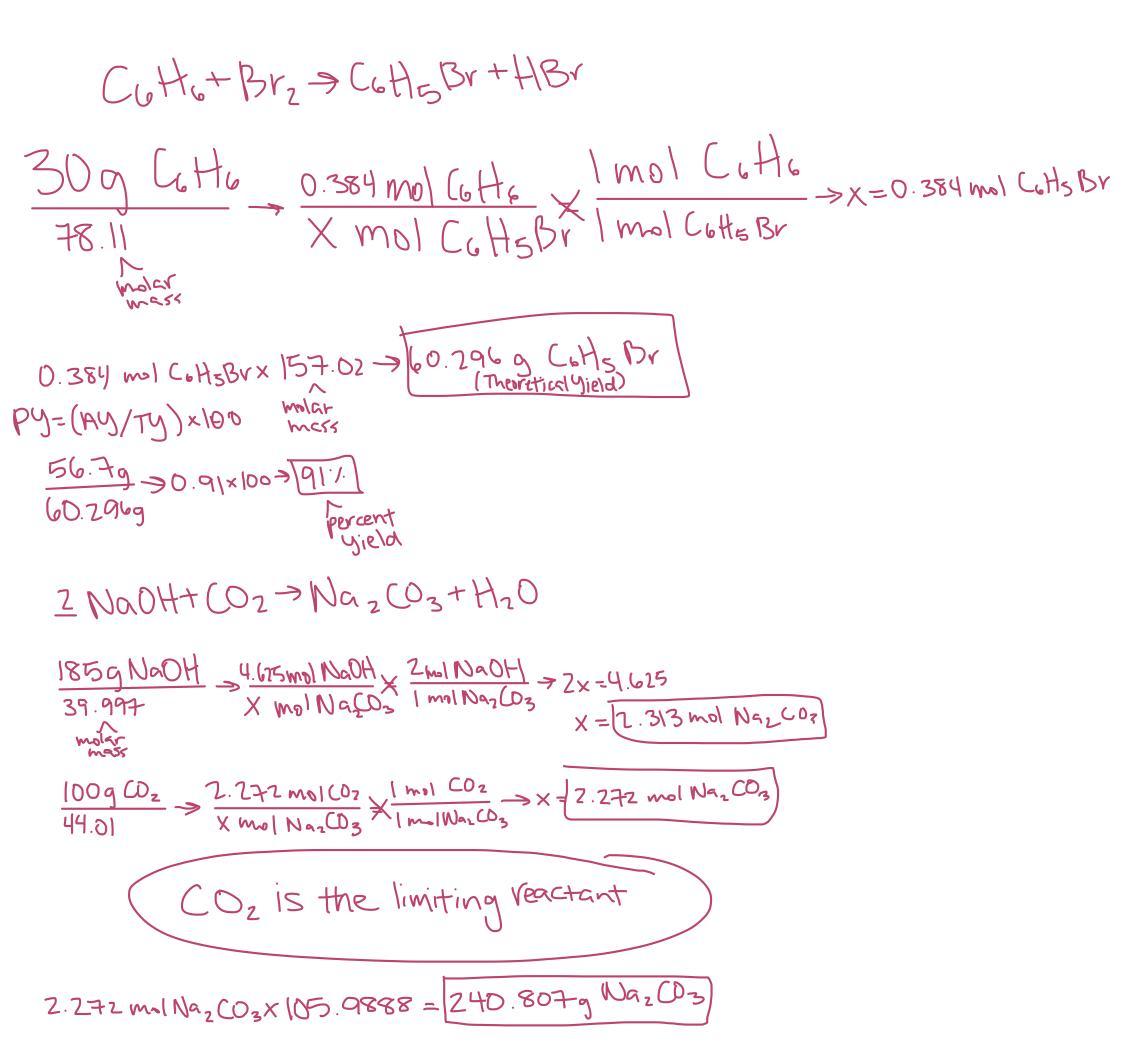 C6H6 + Br2 → C6H5Br + HBr
30g C6H6 / 78.11 → 0.384 mol C6H6 / X mol C6H5Br × 1 mol C6H6 / 1 mol C6H5Br → x = 0.384 mol C6H5Br
^
molar
mass
0.384 mol C6H5Br × 157.02 → 60.296 g C6H5Br
(Theoretical Yield)
^
molar
mass
PY=(AY/TY)×100
56.7g / 60.296g → 0.91×100 → 91%
^
percent
yield
2 NaOH + CO2 → Na2CO3 + H2O
185g NaOH / 39.997 → 4.625 mol NaOH / X mol Na2CO3 × 2 mol NaOH / 1 mol Na2CO3 → 2x = 4.625
x = 2.313 mol Na2CO3
^
molar
mass
100g CO2 / 44.01 → 2.272 mol CO2 / X mol Na2CO3 × 1 mol CO2 / 1 mol Na2CO3 → x = 2.272 mol Na2CO3
CO2 is the limiting reactant
2.272 mol Na2CO3 × 105.9888 = 240.807g Na2CO3